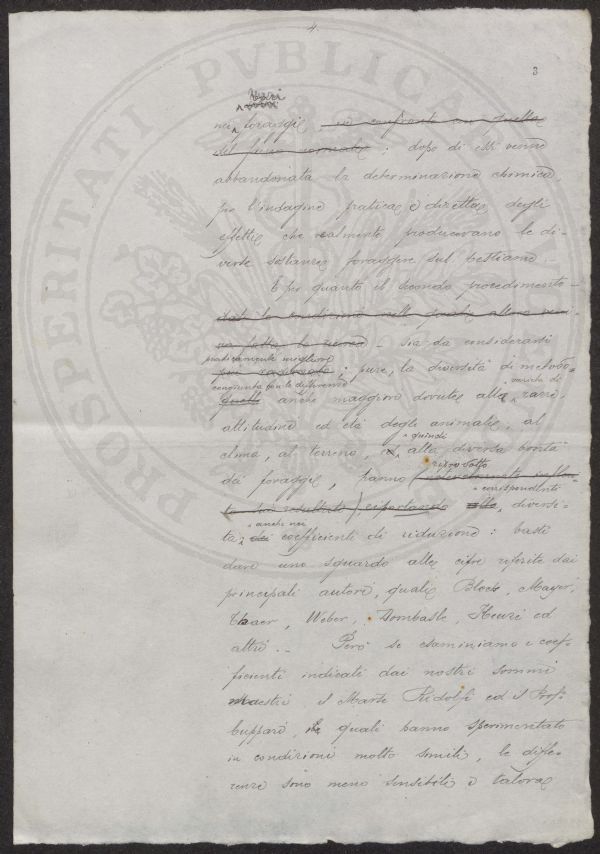 4.
3
vari
nei foraggi in confronto con quella
del fieno normale ; dopo di essi venne
abbandonata la determinazione chimica,
per l'indagine pratica e diretta degli
effetti che realmente producevano le di-
verse sostanze foraggere sul bestiame.
E per quanto il secondo procedimento
sia da considerarsi
praticamente migliore
più razionale ; pure, la diversità di metodo
congiunta con le differenze
quelle anche maggiori dovute alla varietà di razze,
attitudine ed età degli animali, al
clima, al terreno, quindi alla diversa bontà
dei foraggi, hanno
corrispondenti
riportando alle diversi-
tà anche nei dei coefficienti di riduzione : basti
dare uno sguardo alle cifre riferite dai
principali autori, quali Block, Mayer,
Thaer, Weber, Dombasle, Heuzé ed
altri. - Però se esaminiamo i coef-
ficienti indicati dai nostri sommi
maestri, il March. Ridolfi ed il Prof.
Cuppari, i quali hanno sperimentato
in condizioni molto simili, le diffe-
renze sono meno sensibili e talora
PROSPERITATI PVBLICAE